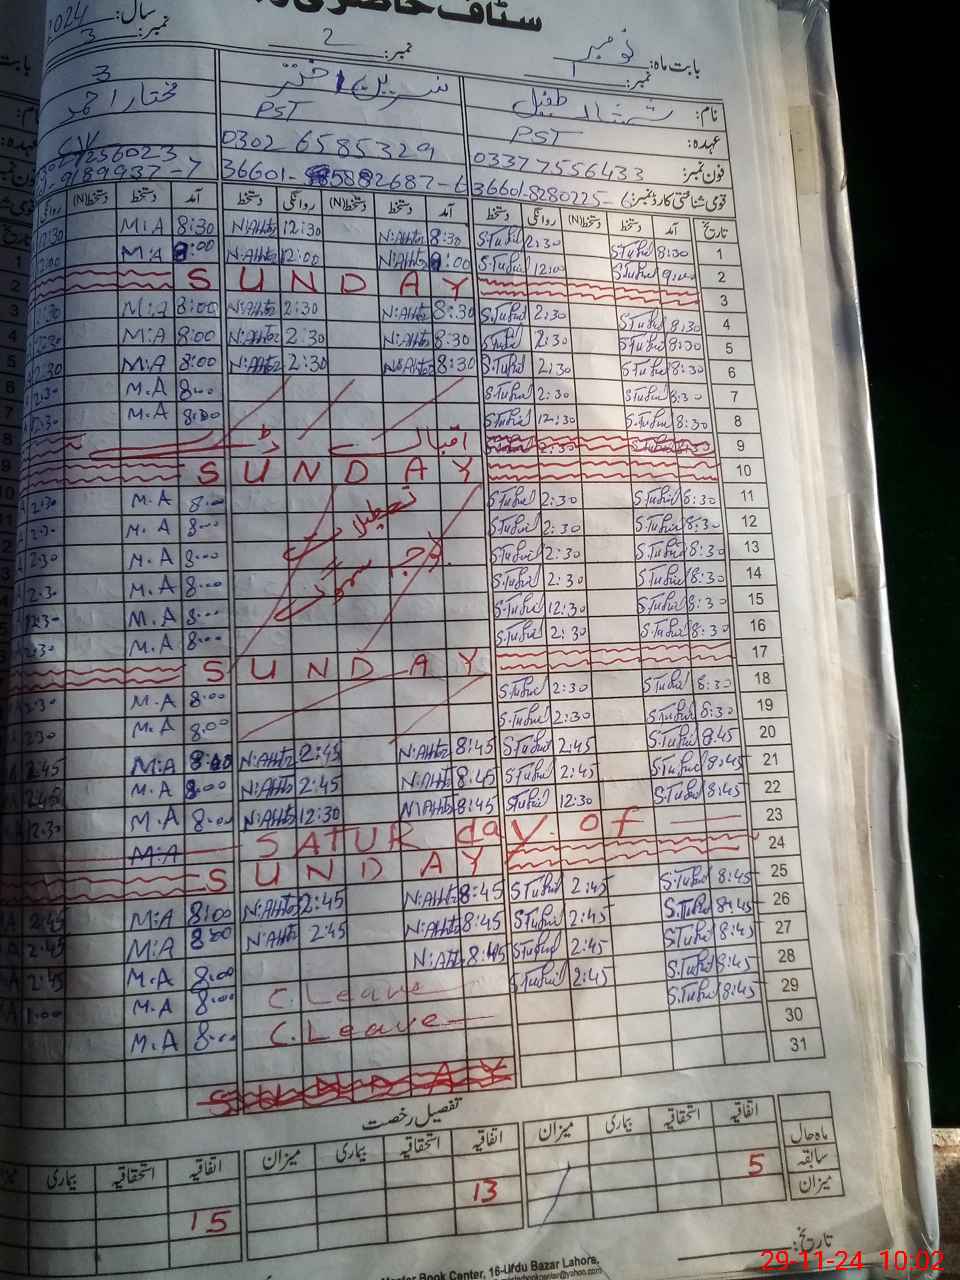 سٹاف حاضری
بابت ماہ: نومبر
سال: 2024
نمبر: 1
نمبر: 2
نمبر: 3
نام: شمائلہ طفیل
نسرین اختر
مختار احمد
عہدہ: PST
PST
فون نمبر: 03377556433
0302 6585329
قومی شناختی کارڈ نمبر: 36601-8280225-6
تاریخ آمد دستخط دستخط(N) روانگی دستخط آمد دستخط دستخط(N) روانگی دستخط آمد دستخط دستخط(N) روانگی
1 8:30 S.Tufail 2:30 S.Tufail 8:30 N.Akhtar 12:30 N.Akhtar 8:30 M:A 12:30
2 9:00 S.Tufail 12:00 S.Tufail 9:00 N.Akhtar 12:00 N.Akhtar 9:00 M:A 12:00
3 SUNDAY
4 8:30 S.Tufail 2:30 S.Tufail 8:30 N.Akhtar 2:30 N.Akhtar 8:00 M:A 2:30
5 8:30 S.Tufail 2:30 S.Tufail 8:30 N.Akhtar 2:30 N.Akhtar 8:00 M:A 2:30
6 8:30 S.Tufail 2:30 S.Tufail 8:30 N.Akhtar 2:30 N.Akhtar 8:00 M:A 2:30
7 8:30 S.Tufail 2:30 S.Tufail 8:00 M.A 2:30
8 8:30 S.Tufail 12:30 S.Tufail 8:00 M.A 12:30
9 اقبال ڈے
10 SUNDAY
11 8:30 S.Tufail 2:30 S.Tufail تعطیل 8:00 M.A 2:30
12 8:30 S.Tufail 2:30 S.Tufail 8:00 M.A 2:30
13 8:30 S.Tufail 2:30 S.Tufail بوجہ سموگ 8:00 M.A 2:30
14 8:30 S.Tufail 2:30 S.Tufail 8:00 M.A 2:30
15 8:30 S.Tufail 12:30 S.Tufail 8:00 M.A 12:30
16 8:30 S.Tufail 2:30 S.Tufail 8:00 M.A 2:30
17 SUNDAY
18 8:30 S.Tufail 2:30 S.Tufail 8:00 M.A 2:30
19 8:30 S.Tufail 2:30 S.Tufail 8:00 M.A 2:30
20 8:45 S.Tufail 2:45 S.Tufail 8:45 N.Akhtar 2:45 N.Akhtar 8:00 M:A 2:45
21 8:45 S.Tufail 2:45 S.Tufail 8:45 N.Akhtar 2:45 N.Akhtar 8:00 M.A 2:45
22 8:45 S.Tufail 12:30 S.Tufail 8:45 N.Akhtar 12:30 N.Akhtar 8:00 M.A 12:30
23 SATUR day of
24 SUNDAY
25 8:45 S.Tufail 2:45 S.Tufail 8:45 N.Akhtar 2:45 N.Akhtar 8:00 M:A 2:45
26 8:45 S.Tufail 2:45 S.Tufail 8:45 N.Akhtar 2:45 N.Akhtar 8:00 M:A 2:45
27 8:45 S.Tufail 2:45 S.Tufail 8:45 N.Akhtar M.A 8:00 2:45
28 8:45 S.Tufail 2:45 S.Tufail C.Leave 8:00 M.A
29 8:45 S.Tufail C.Leave 8:00 M.A
30
31
SUNDAY
تفصیل رخصت
اتفاقیہ استحقاقیہ بیماری میزان اتفاقیہ استحقاقیہ بیماری میزان اتفاقیہ استحقاقیہ بیماری میزان
ماہ حال
سابقہ 5 13 15
میزان
تاریخ:
Master Book Center, 16-Urdu Bazar Lahore,
29-11-24 10:02